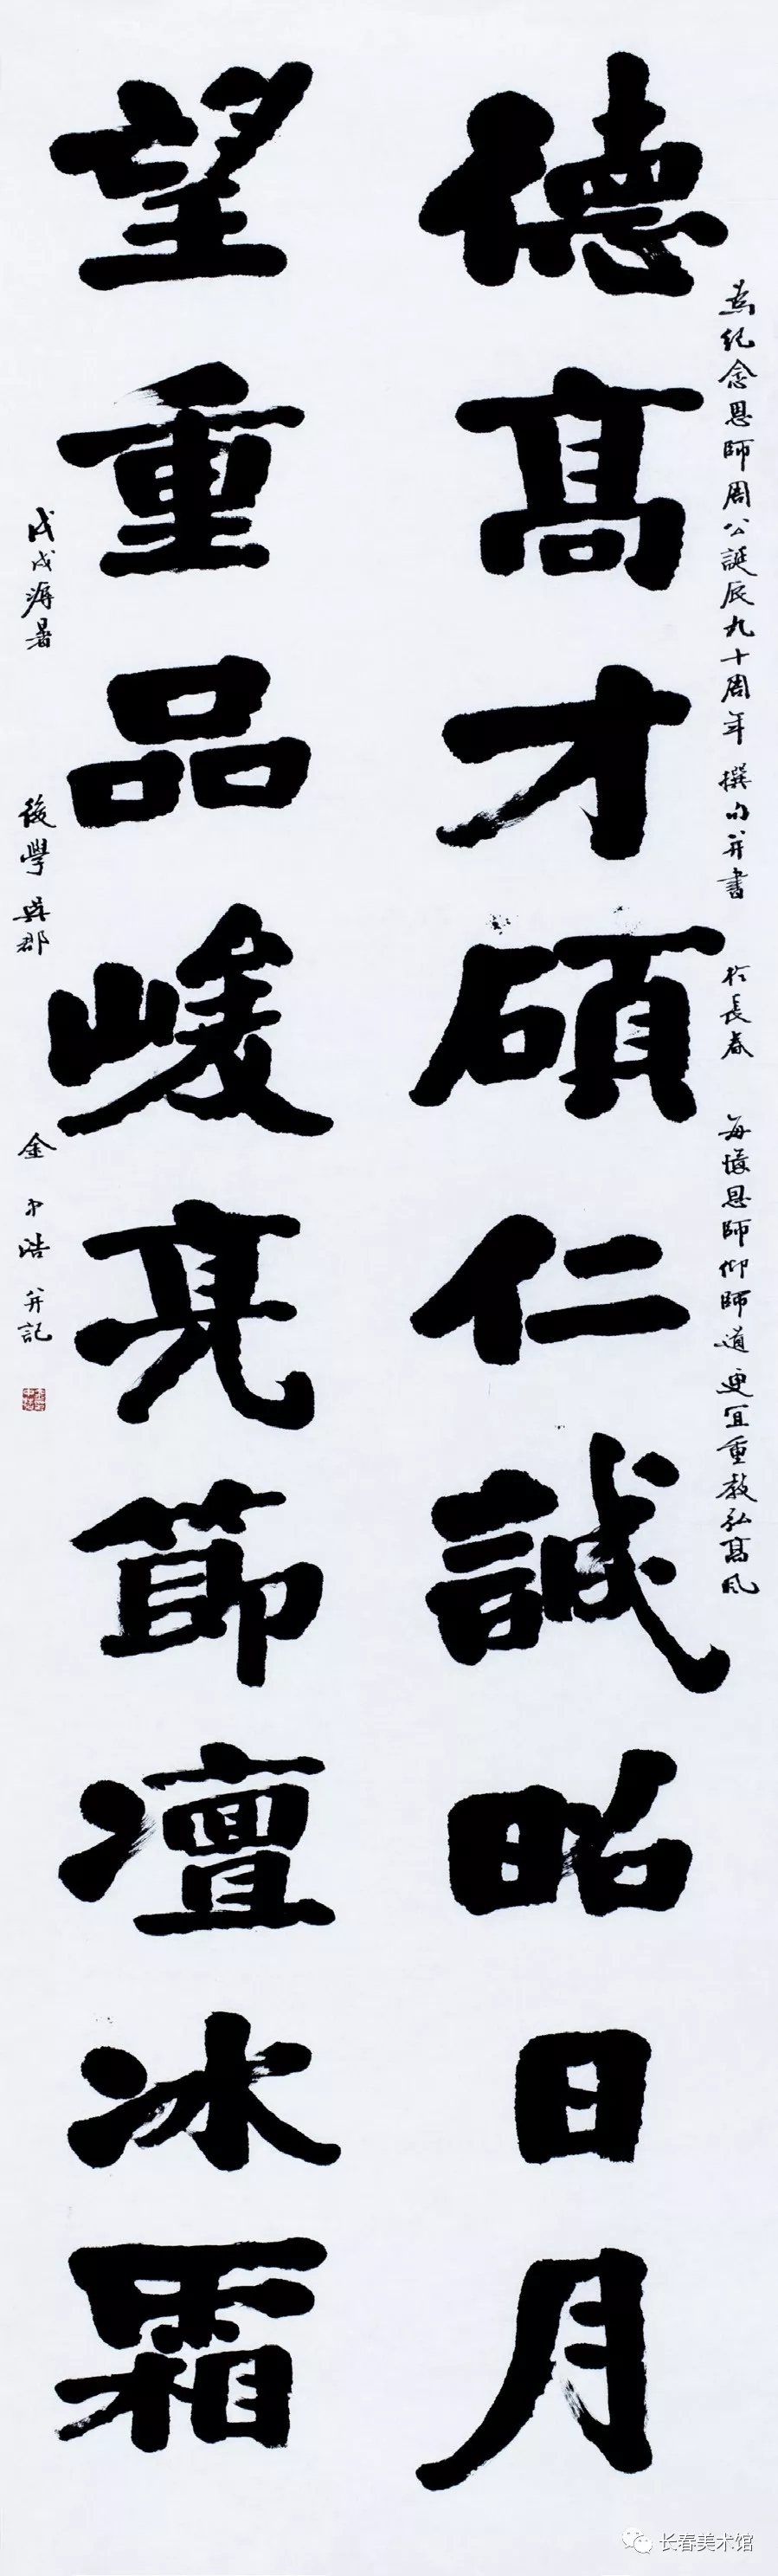 德髙才碩仁誠昭日月
為紀念恩師周公誕辰九十周年 撰句并書 於長春 每憶恩師仰師道 更宜重教弘髙風
望重品峻亮節凜冰霜
戊戌溽暑 後學 吳郡 金中浩 并記
长春美术馆